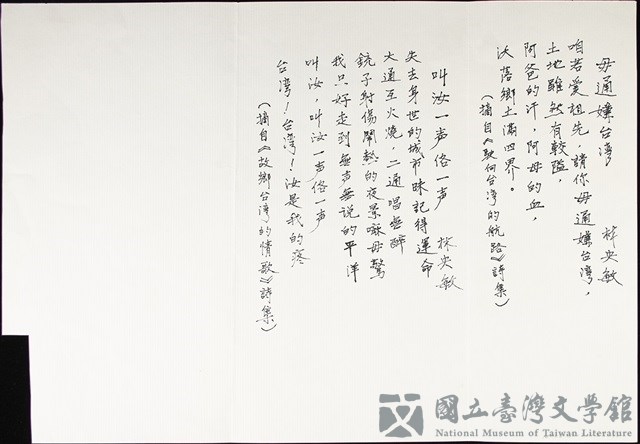 毋通嫌台湾　林央敏
咱若愛祖先，請你毋通嫌台湾，
土地雖然有較隘，
阿爸的汗，阿母的血，
沃落鄉土滿四界。
（摘自《駛向台湾的航路》詩集）
叫汝一声佫一声　林央敏
失去身世的城市昧記得運命
大通互火燒，二通唱無醉
銃子射傷鬧熱的夜景嘛毋驚
我只好走到無声無說的平洋
叫汝，叫汝一声佫一声
台湾！台湾！汝是我的疼
（摘自《故鄉台湾的情歌》詩集）
國立臺灣文學館
National Museum of Taiwan Literature